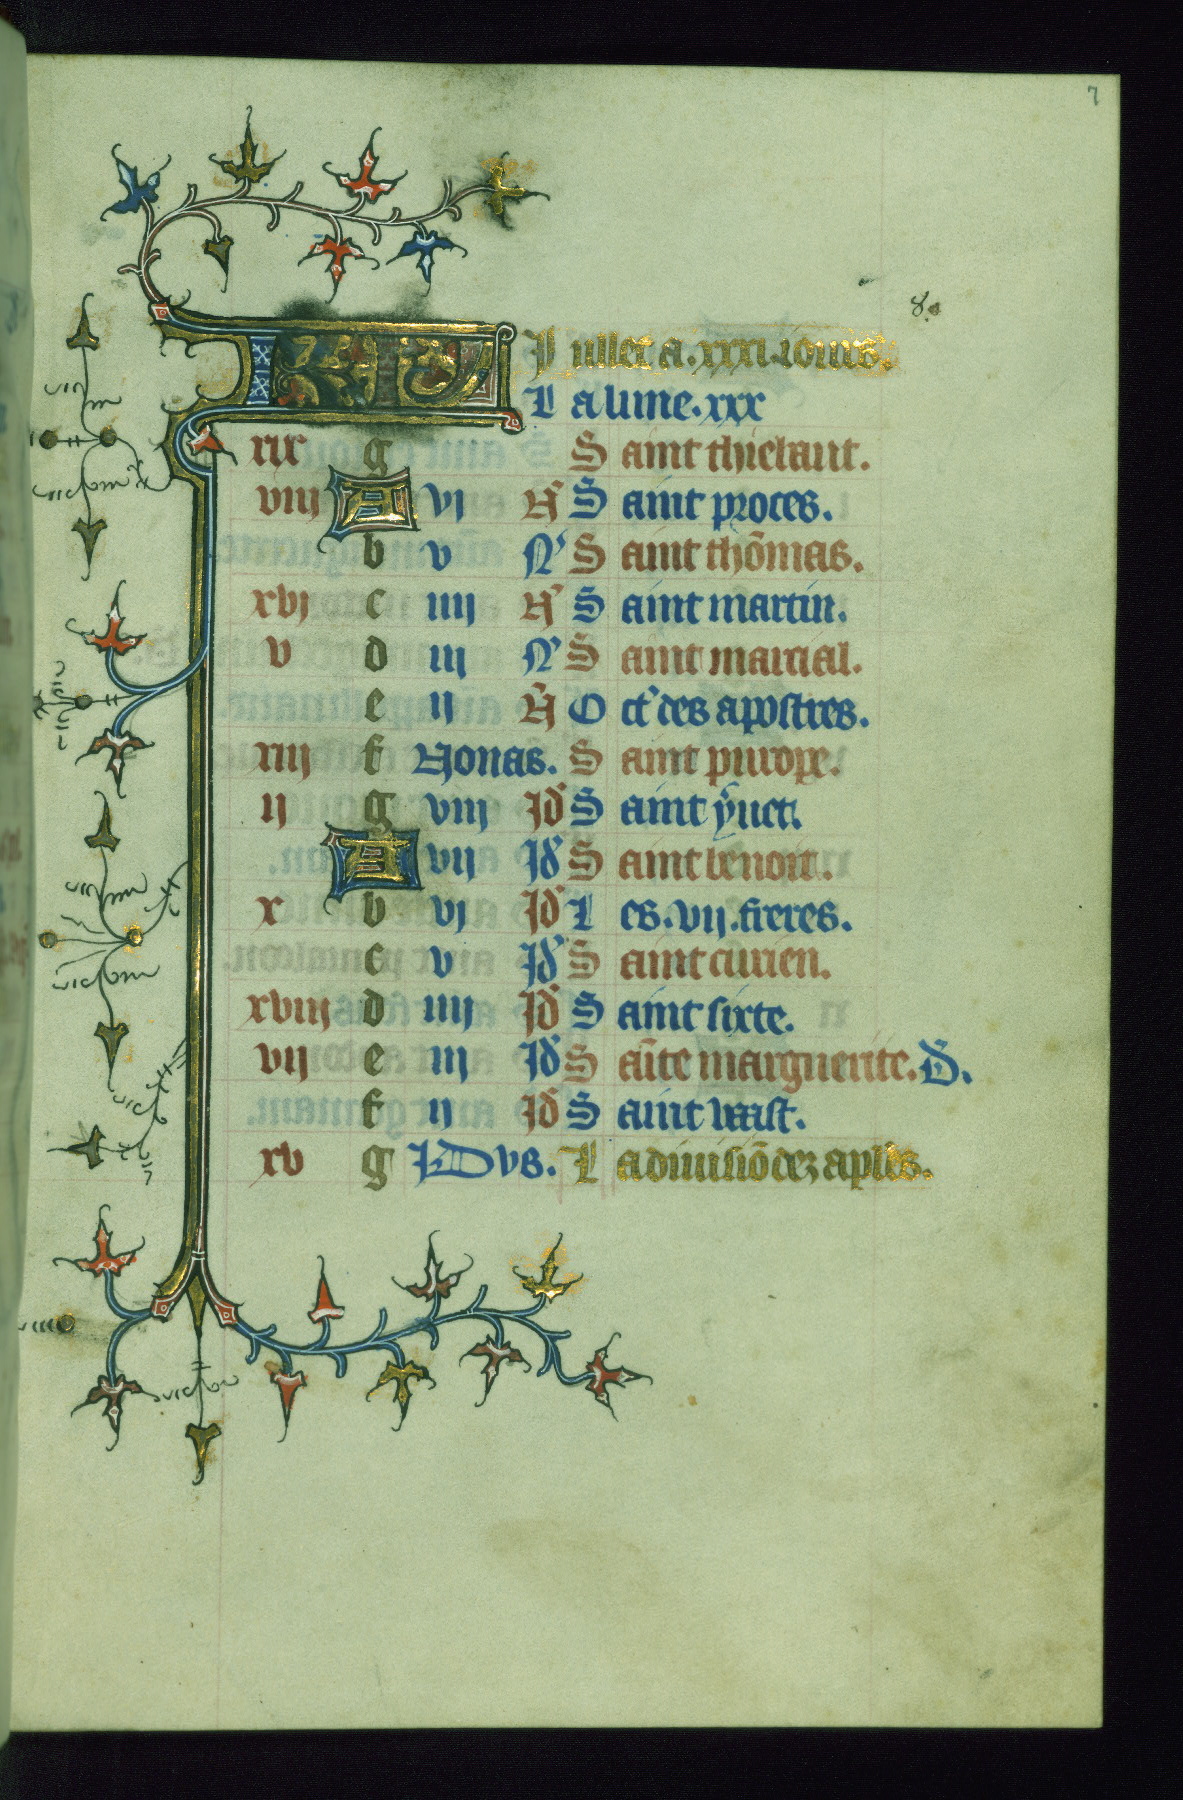 7
8.
KL Juillet a .xxxi. iours.
La lune .xxx
xix g Saint thiebaut.
viii A vi N̄ Saint proces.
b v N' Saint thōmas.
xvi c iiii N̄ Saint martin.
v d iii N' Saint marcial.
e ii N̄ Oct' des apostres.
xiii f Nonas. Saint
ii g viii Id' Saint
A vii Id' Saint benoit.
x b vi Id' Les .vii. freres.
c v Id' Saint
xviii d iiii Id' Saint sixte.
vii e iii Id' Sāīte marguerite. D.
f ii Id' Saint vaast.
xv g IDVS. La diuisiō dez aplēs.